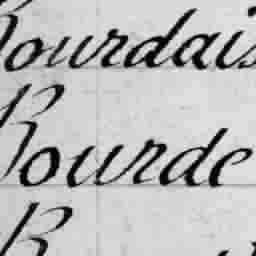 Bourdais
Bourde
B